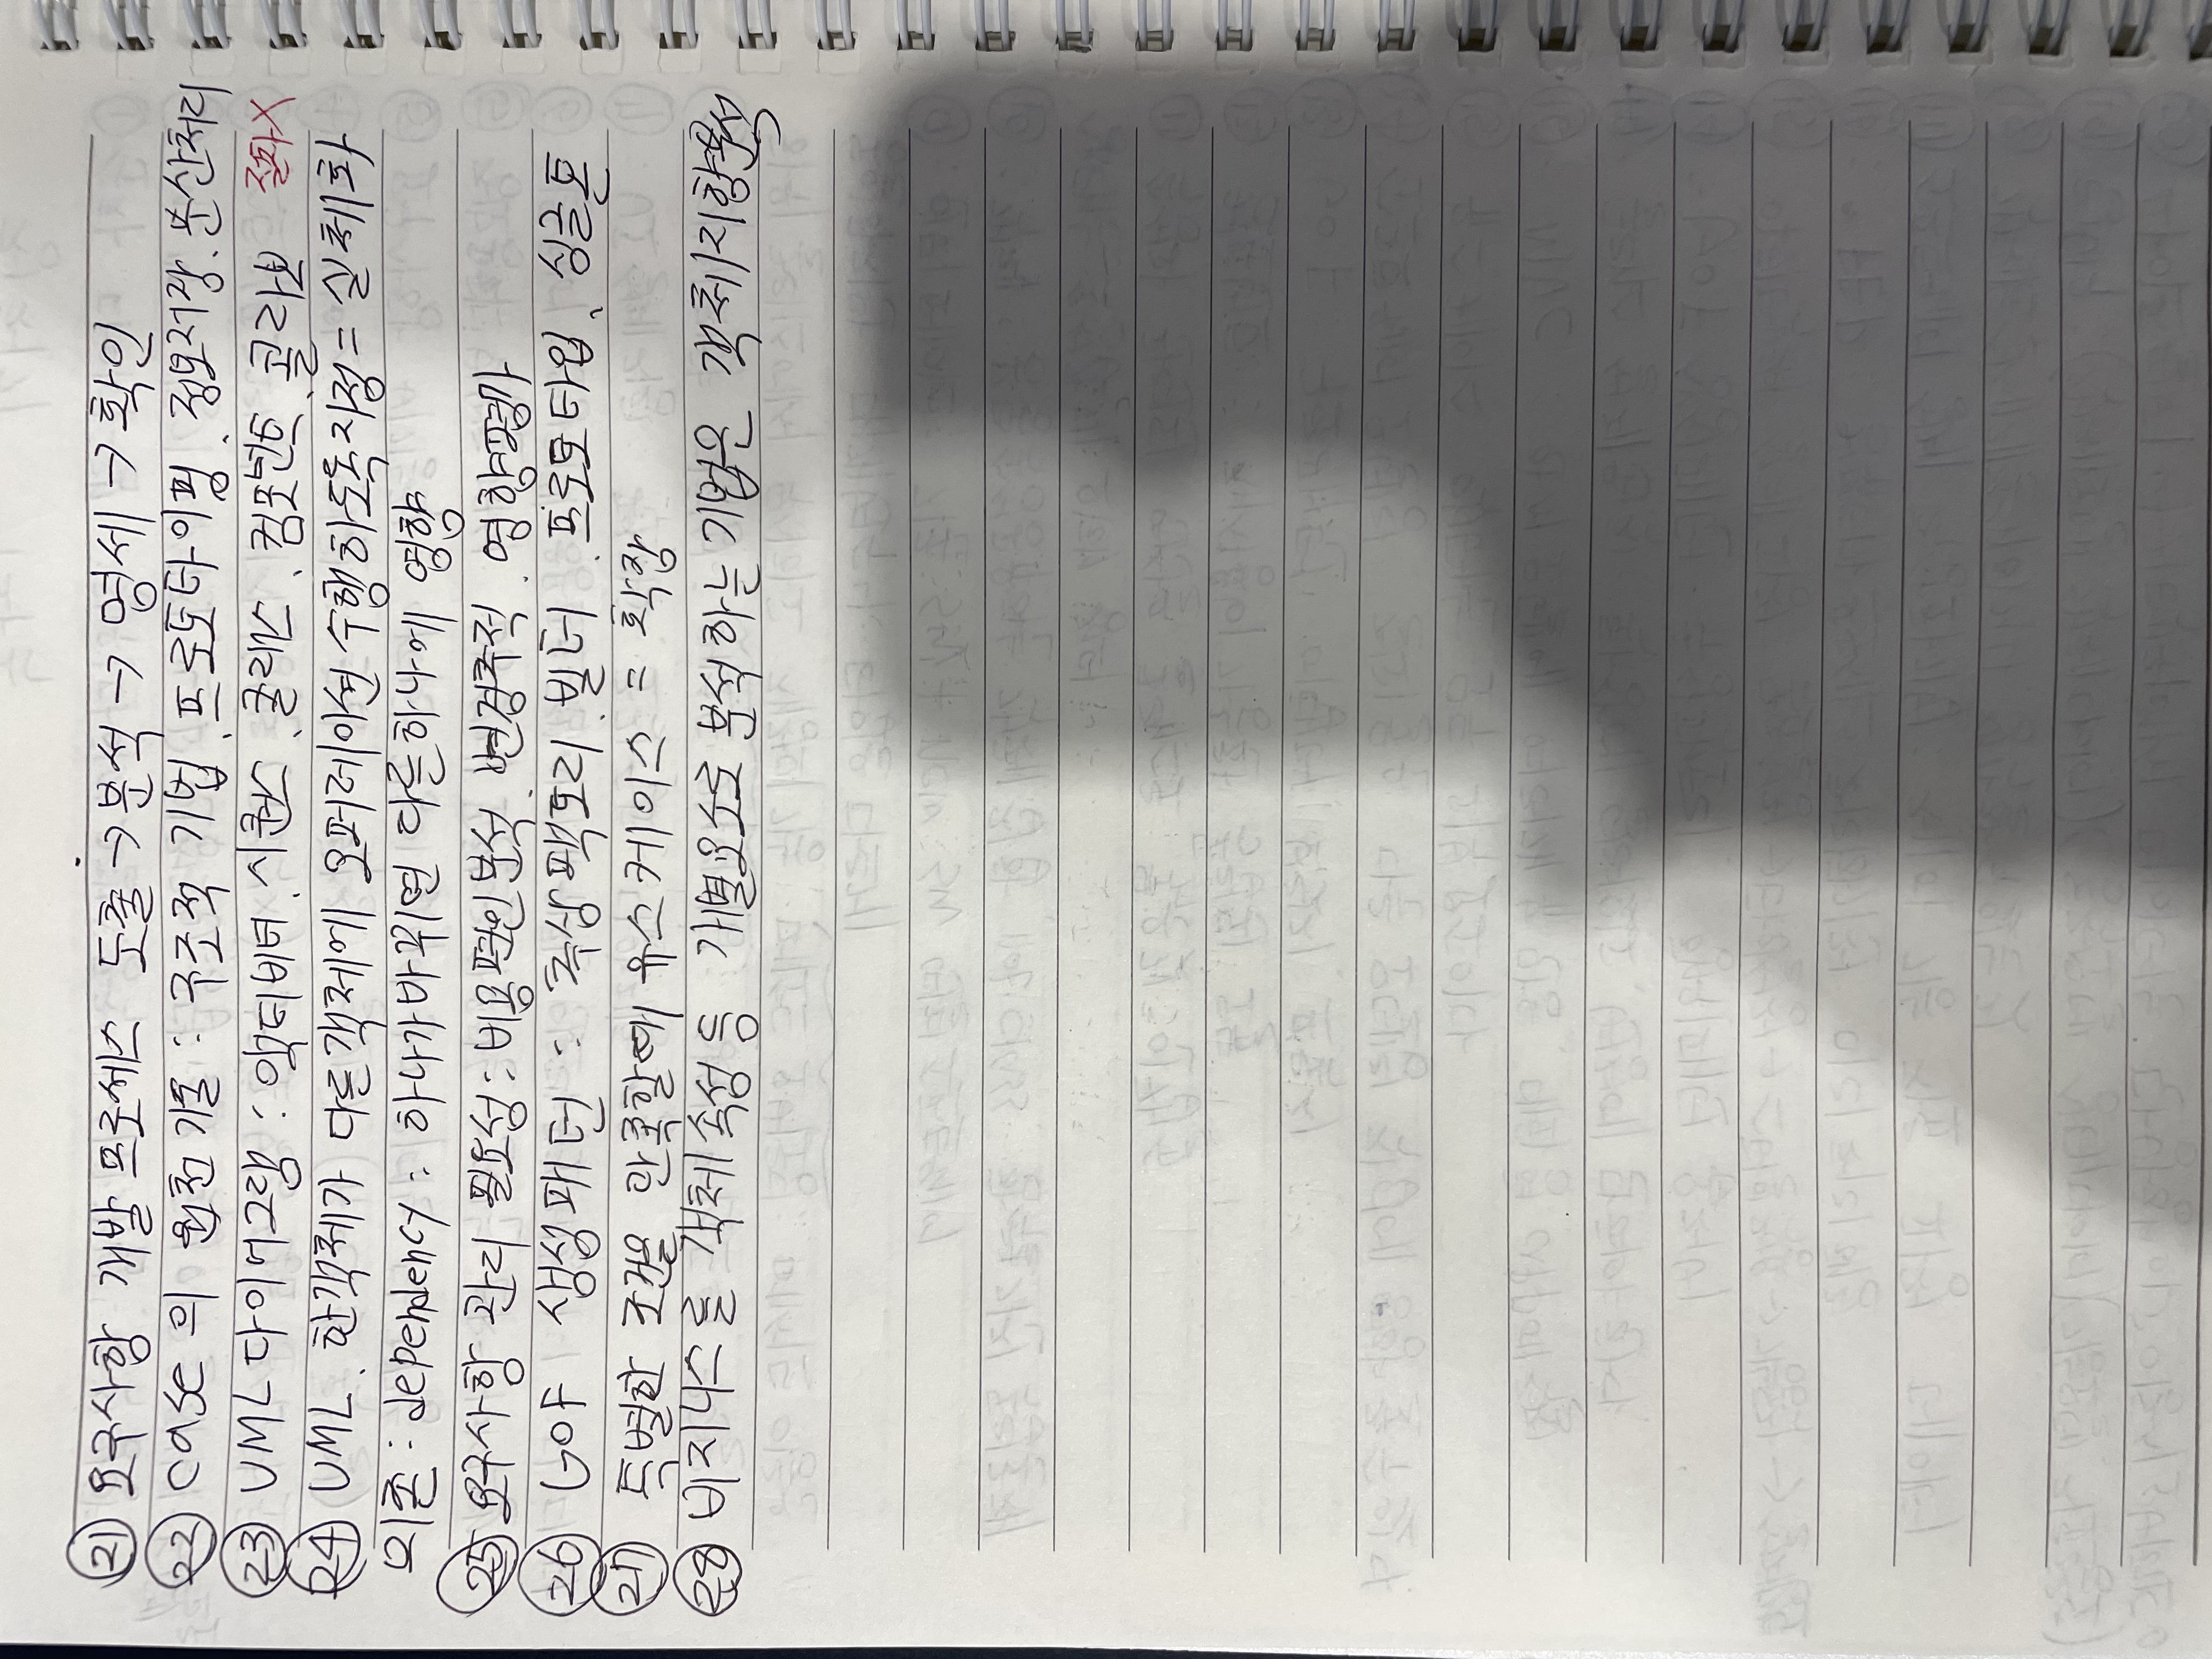 ㉑ 요구사항 개발 프로세스 도출 → 분석 → 명세 → 확인
㉒ CASE의 원천 기술 : 구조적 기법, 프로토타이핑, 정보저장, 분산처리
㉓ UML 다이어그램 : 액티비티, 시퀀스, 클래스, 컴포넌트, 절차X
㉔ UML. 한객체가 다른객체에 오퍼레이션 수행하도록 지정 = 실체화
의존 : dependency : 하나가 바뀌면 다른하나에 영향
㉕ 요구사항 관리 필요성 : 비용편인분석, 변경추적, 영향평가
㉖ GOF 생성패턴 : 추상팩토리, 빌더, 프로토타입, 싱글톤
㉗ 특별한 조건을 만족할때 유스케이스 = 확장
㉘ 비지니스를 객체속성 등 개별요소로 분석하는 기법은 객체지향분석